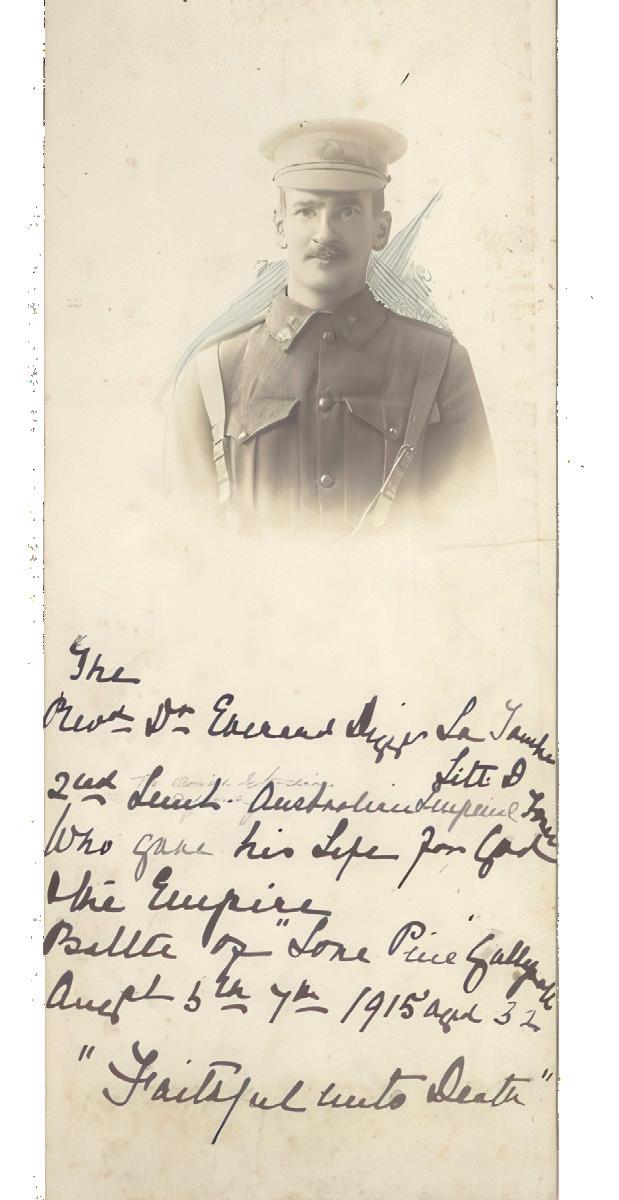 The
Revd Dr Everard Digges La Touche
Litt D
2nd Lieut. Australian Imperial Force
Who gave his Life for God
& the Empire
Battle of "Lone Pine Gallipoli
Augst 5th 7th 1915 aged 32
"Faithful unto Death"